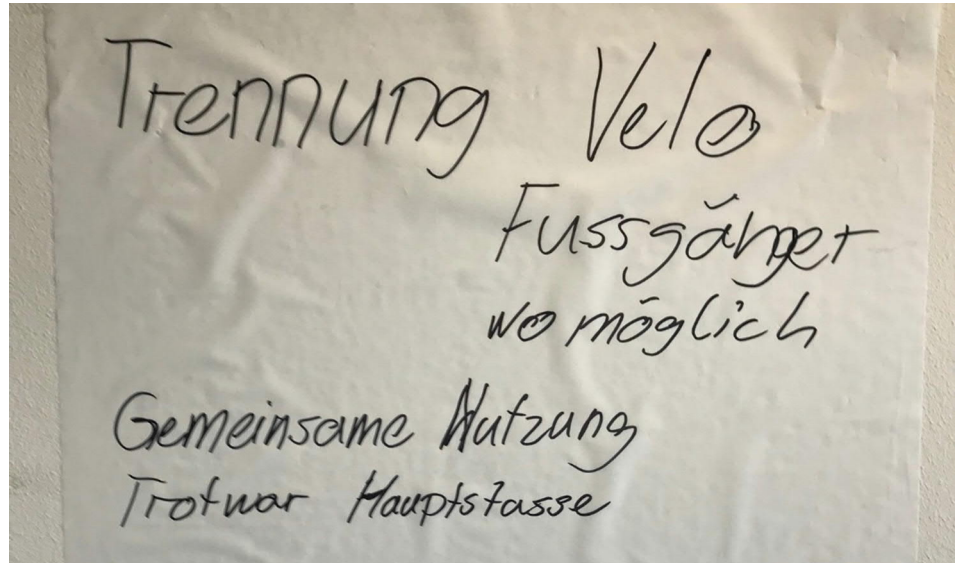 Trennung Velo
Fussgänger
wo möglich
Gemeinsame Nutzung
Trotwar Hauptstasse